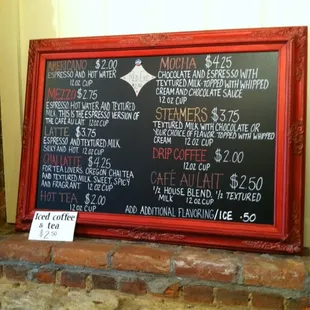 AMERICANO $2.00
ESPRESSO AND HOT WATER
12 OZ CUP
MEZZO $2.75
ESPRESSO HOT WATER AND TEXTURED
MILK. THIS IS THE ESPRESSO VERSION OF
THE CAFÉ AU LAIT 12 OZ CUP
LATTE $3.75
ESPRESSO AND TEXTURED MILK
SILKY AND HOT 12 OZ CUP
CHAI LATTE $4.25
FOR TEA LOVERS. OREGON CHAI TEA
AND TEXTURED MILK. SWEET, SPICY
AND FRAGRANT 12 OZ CUP
HOT TEA $2.00
12 OZ CUP
MOCHA $4.25
CHOCOLATE AND ESPRESSO WITH
TEXTURED MILK TOPPED WITH WHIPPED
CREAM AND CHOCOLATE SAUCE
12 OZ CUP
STEAMERS $3.75
TEXTURED MILK WITH CHOCOLATE OR
YOUR CHOICE OF FLAVOR TOPPED WITH WHIPPED
CREAM 12 OZ CUP
DRIP COFFEE $2.00
12 OZ CUP
CAFÉ AU LAIT $2.50
1/2 HOUSE BLEND, 1/2 TEXTURED
MILK 12 OZ CUP
ADD ADDITIONAL FLAVORING/ICE .50
Iced coffee
& tea
$2.50